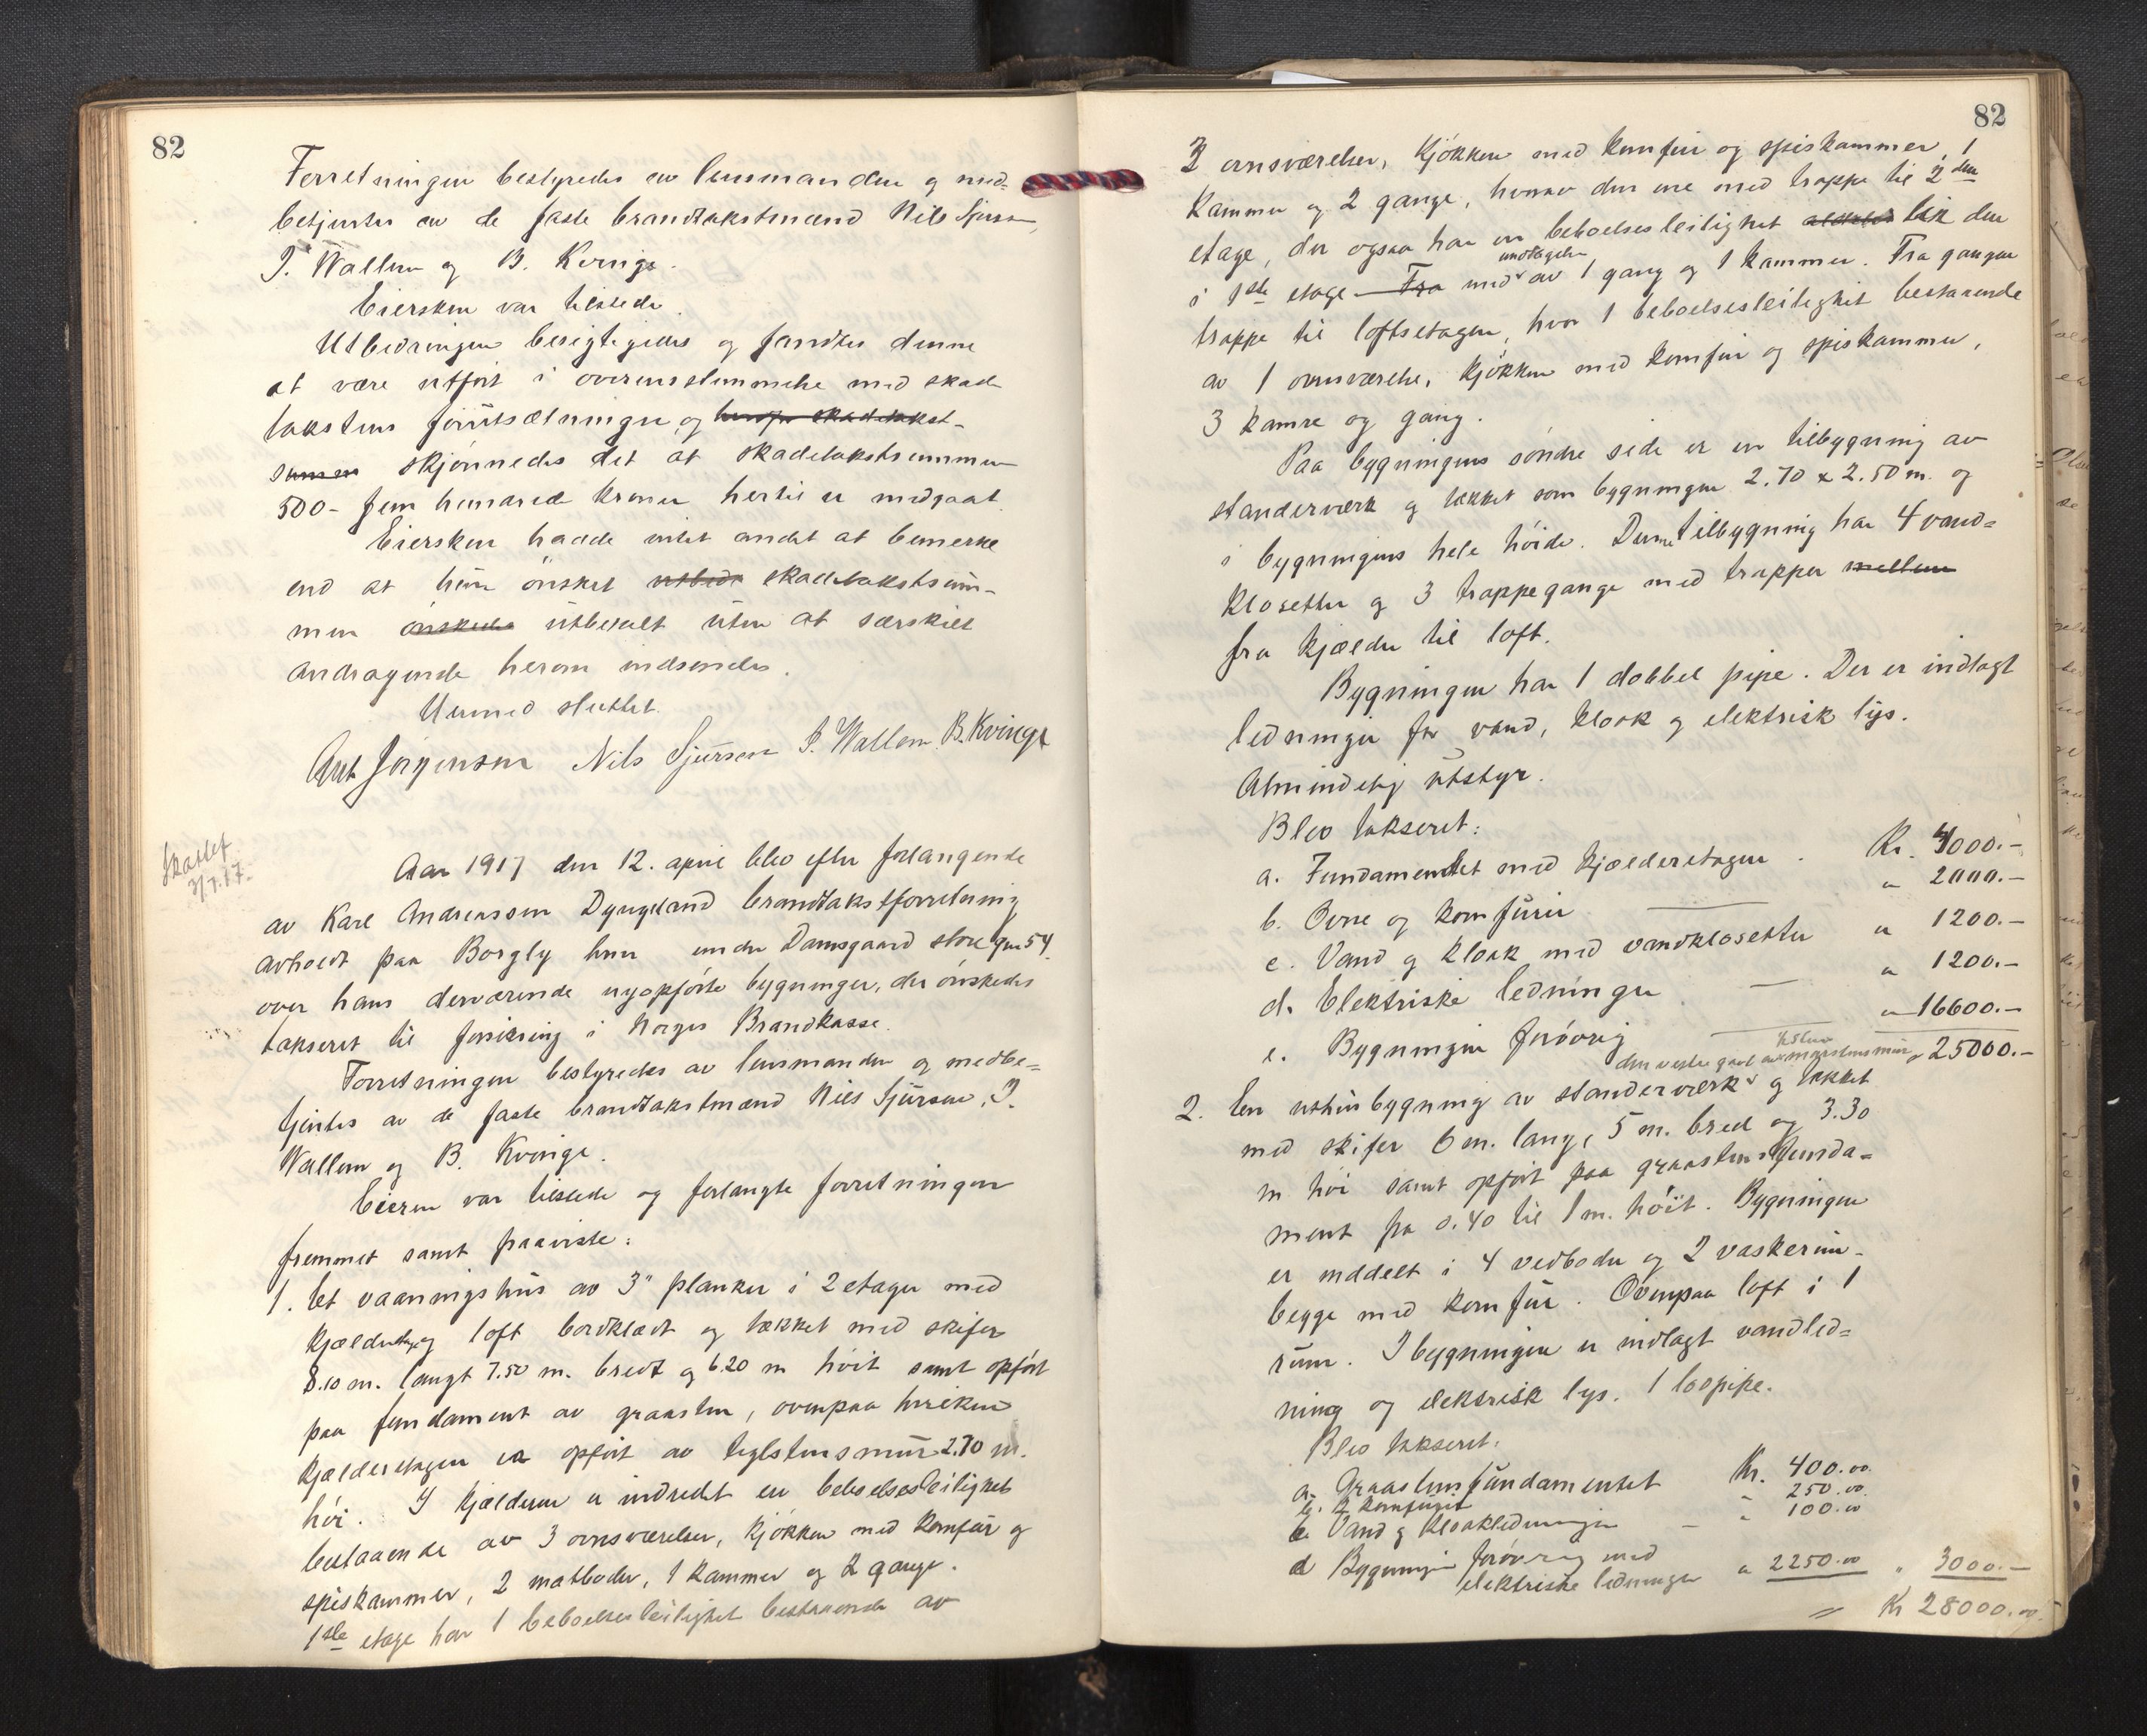 82
Forretningen bestyredes av lensmanden og med-
betjentes av de faste brandtakstmænd Nils Sjursen,
I. Wallem og B. Kvinge.
Eiersken var tilstede.
Utbedringen besigtigedes og fandtes denne
at være utført i overensstemmelse med skade
takstens forutsætninger og skadetakst-
summen skjønnedes det at skadetakstsummen
500- fem hundrede kroner hertil er medgaat.
Eiersken hadde intet andet at bemerke
end at hun ønsket utbedt skadetakstsum-
men ønskedes utbetalt uten at særskilt
andragende herom indsendes.
Hermed sluttet.
Ant Jørgensen Nils Sjursen I. Wallem B. Kvinge
Skattet
3/7.17.
Aar 1917 den 12. april blev efter forlangende
av Karl Andreassen Dyngeland brandtakstforretning
avholdt paa Borgly under Damsgaard store gnr 54.
over hans derværende nyopførte bygninger, der ønskedes
takseret til forsikring i Norges Brandkasse.
Forretningen bestyredes av lensmanden og medbe=
tjentes av de faste brandtakstmænd Nils Sjursen, I.
Wallem og B. Kvinge.
Eieren var tilstede og forlangte forretningen
fremmet samt paaviste:
1. Et vaaningshus av 3" planker i 2 etager med
kjælderetage og loft bordklædt og tækket med skifer
8.10 m. langt 7.50 m. bredt og 6.20 m høit samt opført
paa fundament av graasten, ovenpaa hvilken
kjælderetagen er opført av teglstensmur 2.70 m.
høi. I kjælderen er indredet en beboelsesleilighet
bestaaende av 3 ovnsværelser, kjøkken med komfur og
spiskammer, 2 matboder, 1 kammer og 2 gange.
1ste etage har 1 beboelsesleilighet bestaaende av
82
3 ovnsværelser, kjøkken med komfur og spiskammer, 1
kammer og 2 gange, hvorav den ene med trappe til 2den
etage, der ogsaa har en beboelsesleilighet lik den
undtagelse
i 1ste etage Fra med av 1 gang og 1 kammer. Fra gangen
trappe til loftsetagen, hvor 1 beboelsesleilighet bestaaende
av 1 ovnsværelse, kjøkken med komfur og spiskammer,
3 kamre og gang.
Paa bygningens søndre side er en tilbygning av
standerværk og tækket som bygningen 2.70 x 2.50 m. og
i bygningens hele høide. Denne tilbygning har 4 vand=
klosetter og 3 trappegange med trapper mellem
fra kjælder til loft.
Bygningen har 1 dobbel pipe. Der er indlagt
ledninger for vand, kloak og elektrisk lys.
Almindelig utstyr.
Blev takseret:
a. Fundamentet med kjælderetagen . Kr. 4000.-
b. Ovne og komfurer " 2000.-
c. Vand og kloak med vandklosetter " 1200.-
d. Elektriske ledninger " 1200.-
e. Bygningen forøvrig " 16600.-
den vestre gavl av murstensmur " 25000.-
2. En uthusbygning av standerværk og tækket
med skifer 6 m. lang, 5 m. bred og 3.30
m høi samt opført paa graastensfunda=
ment fra 0.40 til 1 m. høit. Bygningen
er inddelt i 4 vedboder og 2 vaskerum
begge med komfur. Ovenpaa loft i 1
rum. I bygningen er indlagt vandled=
ning og elektrisk lys. 1 løspipe.
Blev takseret:
a. Graastensfundamentet Kr. 400.00
b. 2 komfurer " 250.00
c. Vand og kloakledninger - " 100.00
d Bygningen forøvrig med
elektriske ledninger " 2250.00 " 3000.-
= Kr 28000.00